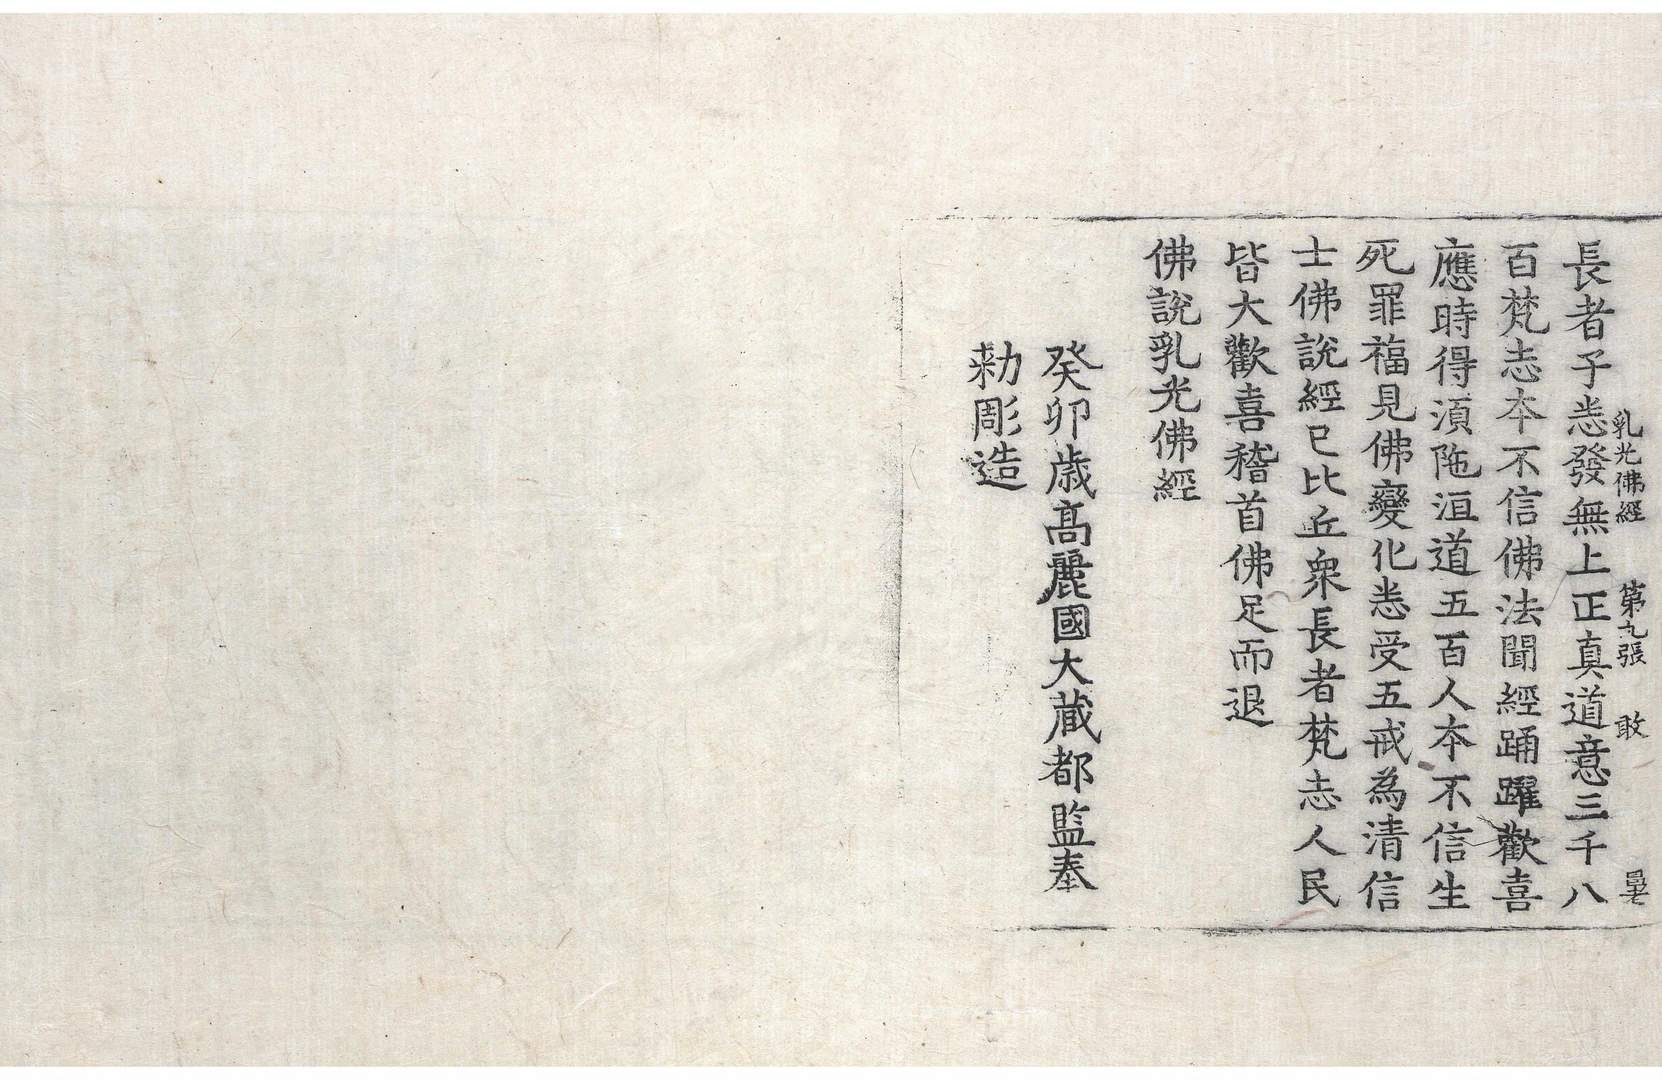 長者子恙發無上正真道意三千八
乳光佛經 第九張 敢
百梵志本不信佛法聞經踊躍歡喜
應時得湏陁洹道五百人本不信生
死罪福見佛變化恙受五戒為清信
士佛說經已比丘衆長者梵志人民
皆大歡喜稽首佛足而退
佛說乳光佛經
癸卯歲高麗國大藏都監奉
勑彫造